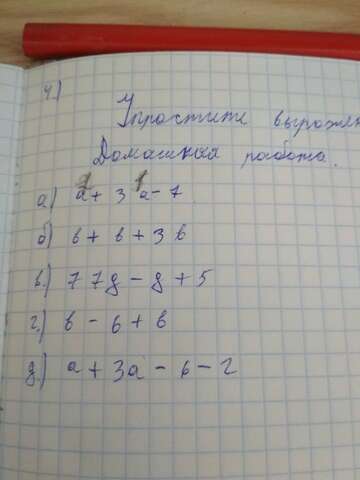 4)
Упростите выражен
Домашняя работа.
а) a + 3 a - 7
б) в + в + 3 в
в.) 7 7 g - g + 5
г.) в - 6 + в
д.) a + 3a - 6 - 2